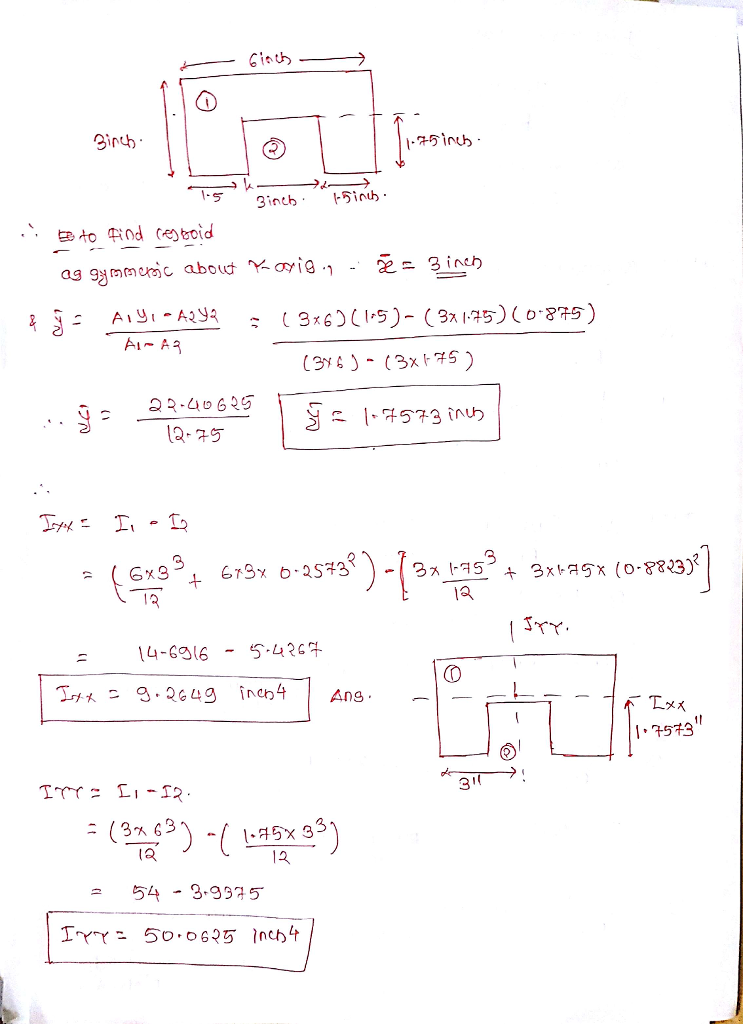 6inch
①
3inch.
②
1.75 inch.
1.5 3inch. 1.5inch.
∴ to find centroid
as symmetric about Y-axis, x̄ = 3 inch
& ȳ = A1Y1 - A2Y2 / A1 - A2 = (3x6)(1.5) - (3x1.75)(0.875) / (3x6) - (3x1.75)
∴ ȳ = 22.40625 / 12.75 ȳ = 1.7573 inch
∴
Ixx = I1 - I2
= (6x3³/12 + 6x3x 0.2573²) - [3x1.75³/12 + 3x1.75x (0.8823)²]
= 14.6916 - 5.4267
Ixx = 9.2649 inch4 Ans.
IYY.
①
Ixx
1.7573"
②
3"
IYY = I1 - I2.
= (3x6³/12) - (1.75x3³/12)
= 54 - 3.9375
IYY = 50.0625 inch4